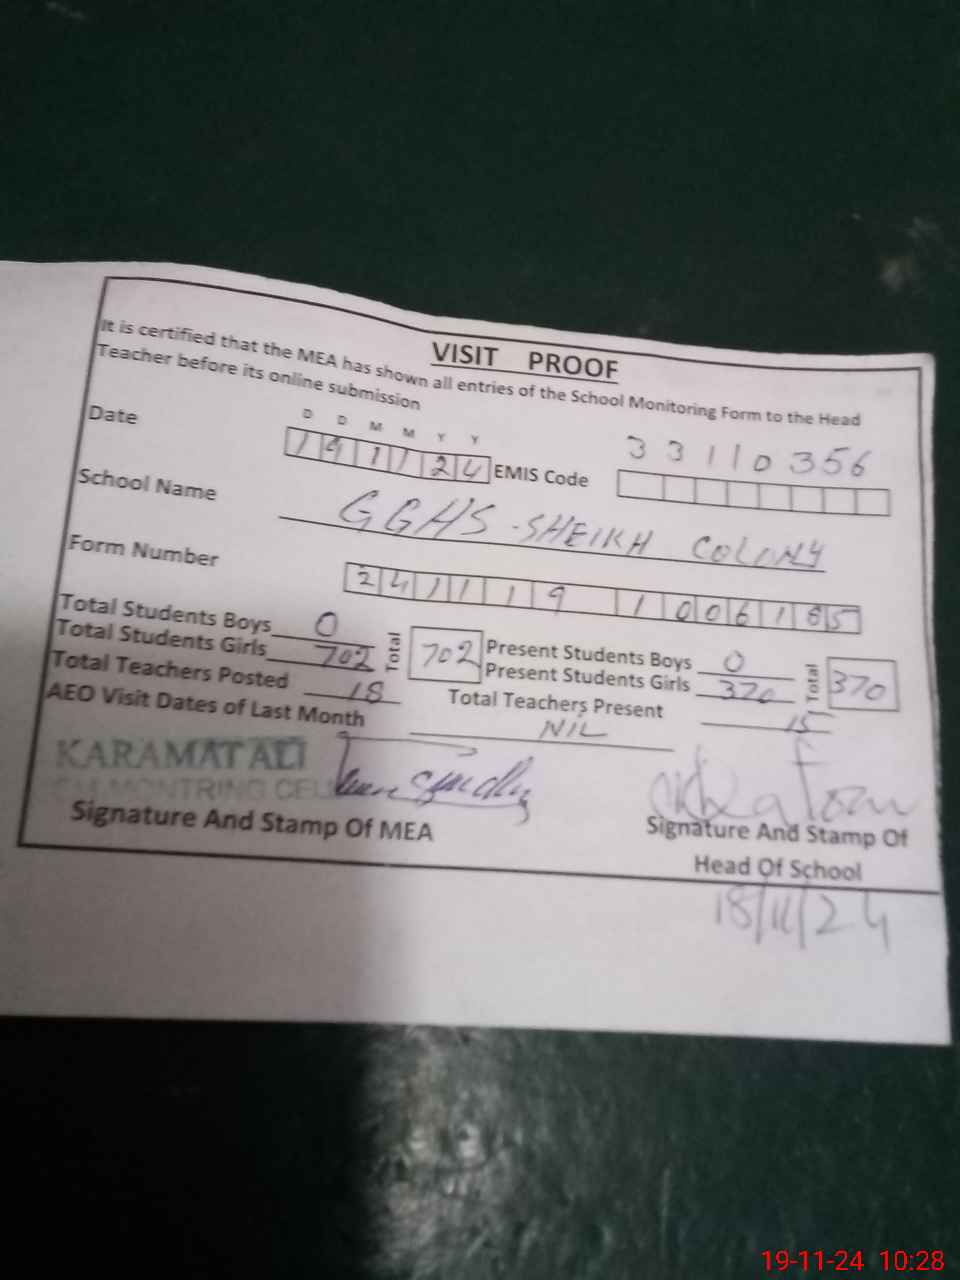 VISIT PROOF
It is certified that the MEA has shown all entries of the School Monitoring Form to the Head
Teacher before its online submission
D D M M Y Y
Date 191124 EMIS Code 33110356
School Name GGHS-SHEIKH COLONY
Form Number 2411191006185
Total Students Boys 0 Present Students Boys 0
Total Students Girls 702 Total 702 Present Students Girls 370 Total 370
Total Teachers Posted 18 Total Teachers Present 15
AEO Visit Dates of Last Month NIL
KARAMAT ALI
MONTRING CELL
Signature And Stamp Of MEA
Signature And Stamp Of
Head Of School
18/11/24
19-11-24 10:28